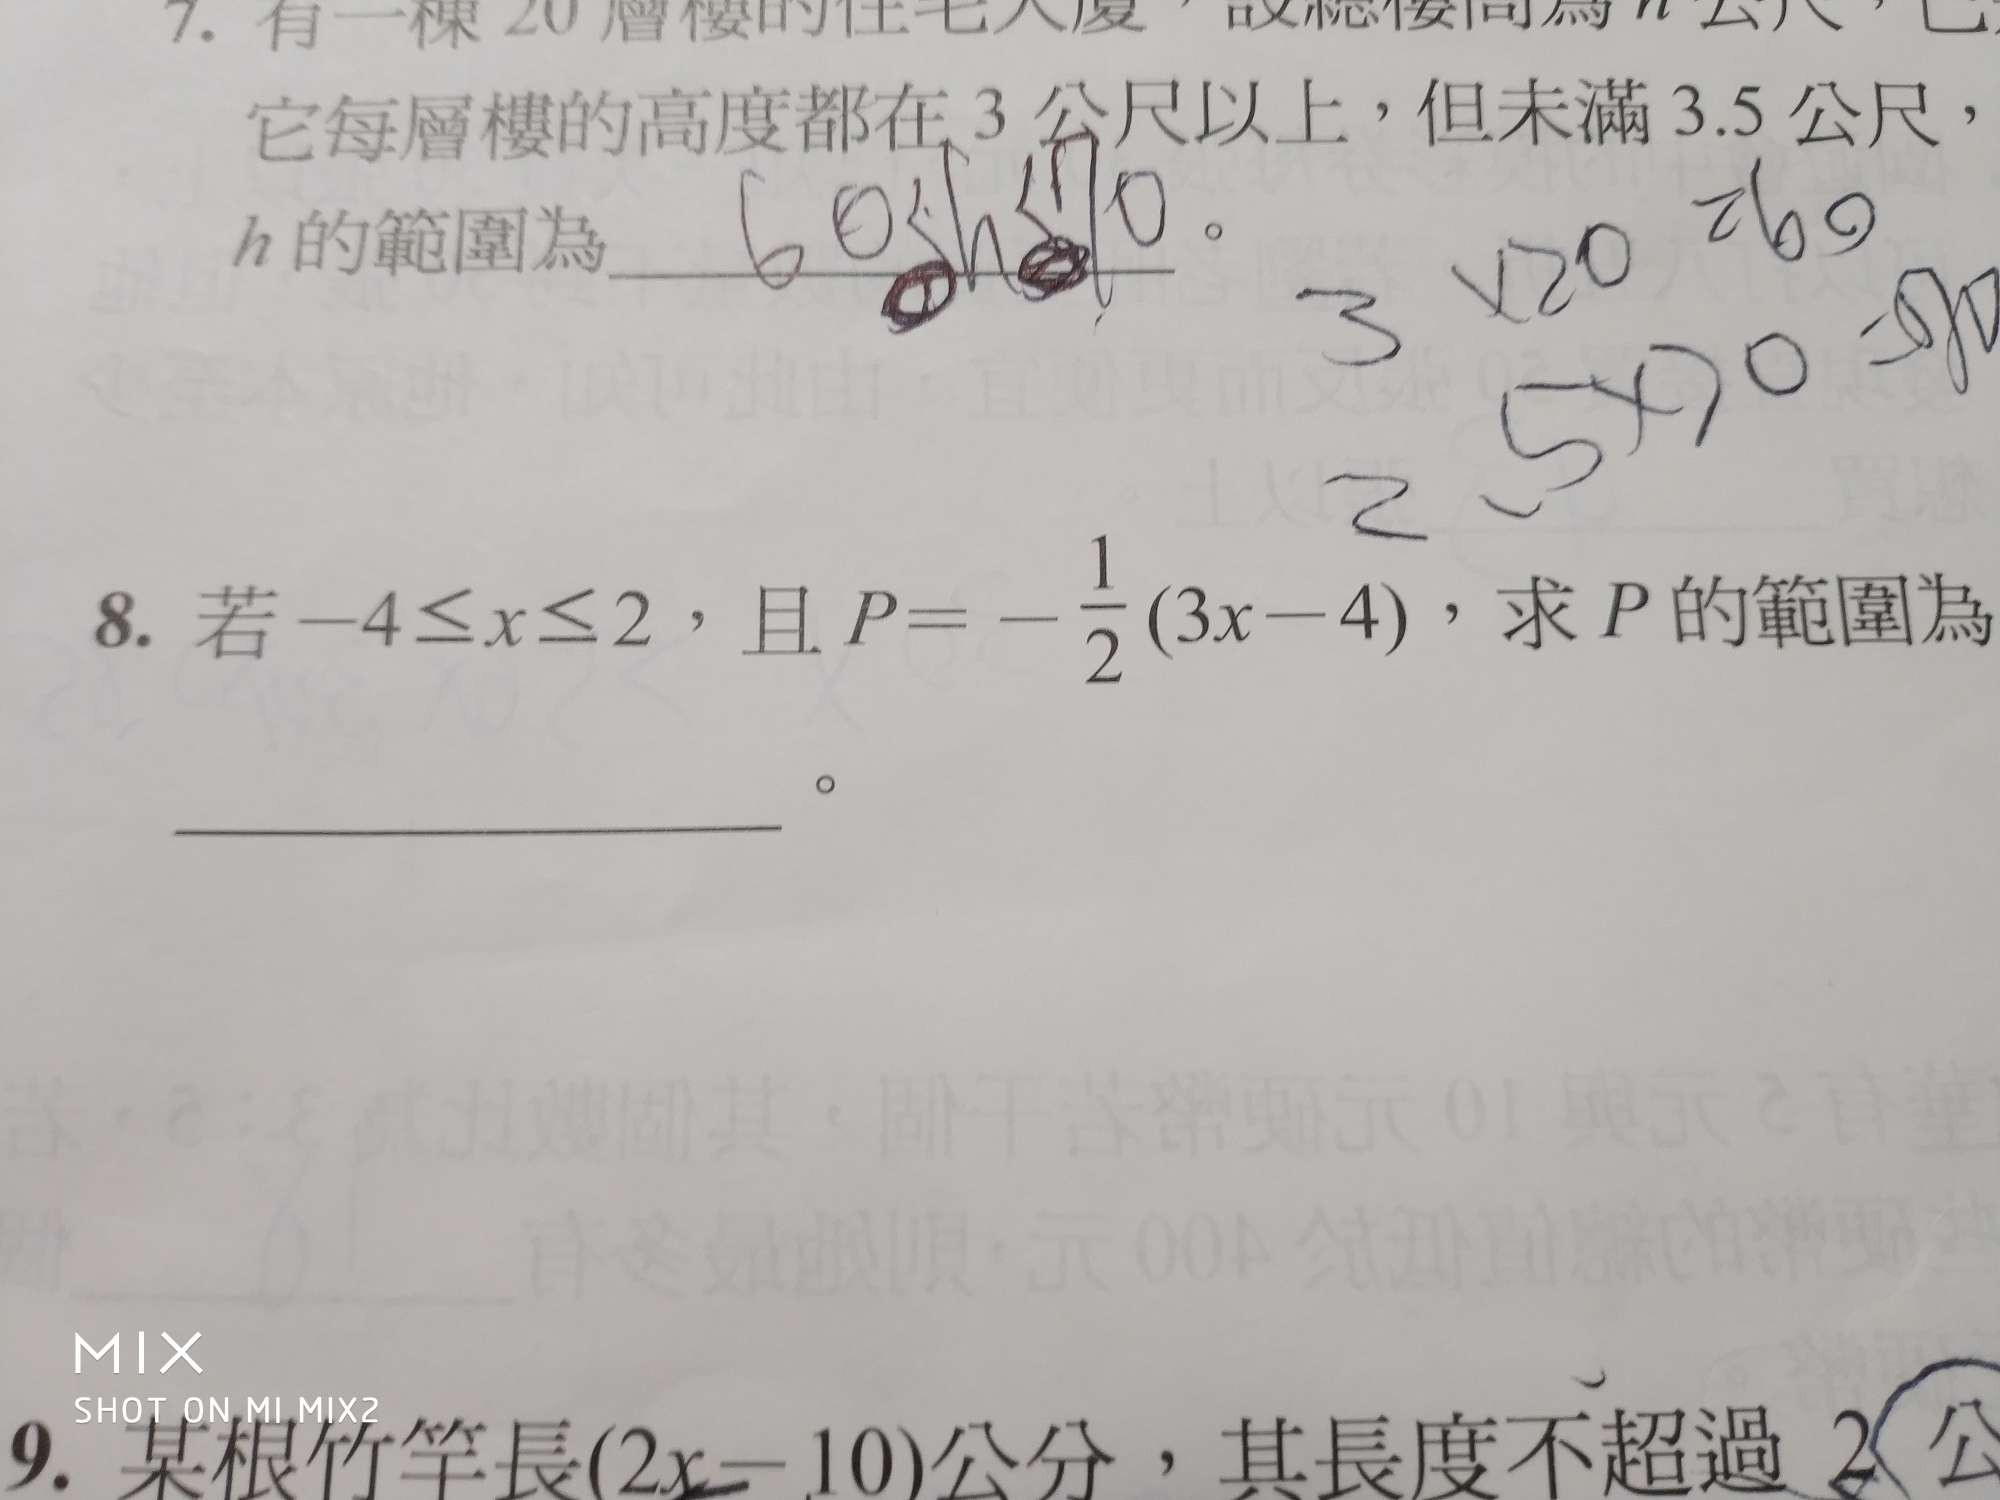 7. 有一棟 20 層樓的住宅大廈，設總樓高為 h 公尺，已
它每層樓的高度都在 3 公尺以上，但未滿 3.5 公尺，
h 的範圍為 60≤h≤70 。
3 x20 260
5x70
2
8. 若 −4≤x≤2，且 P=−1/2(3x−4)，求 P 的範圍為
。
MIX
SHOT ON MI MIX2
9. 某根竹竿長(2x−10)公分，其長度不超過 2 公